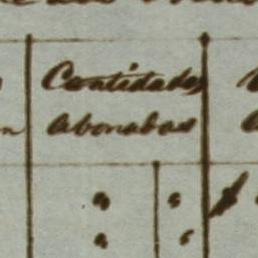 Cantidades
abonabas
" "
" "